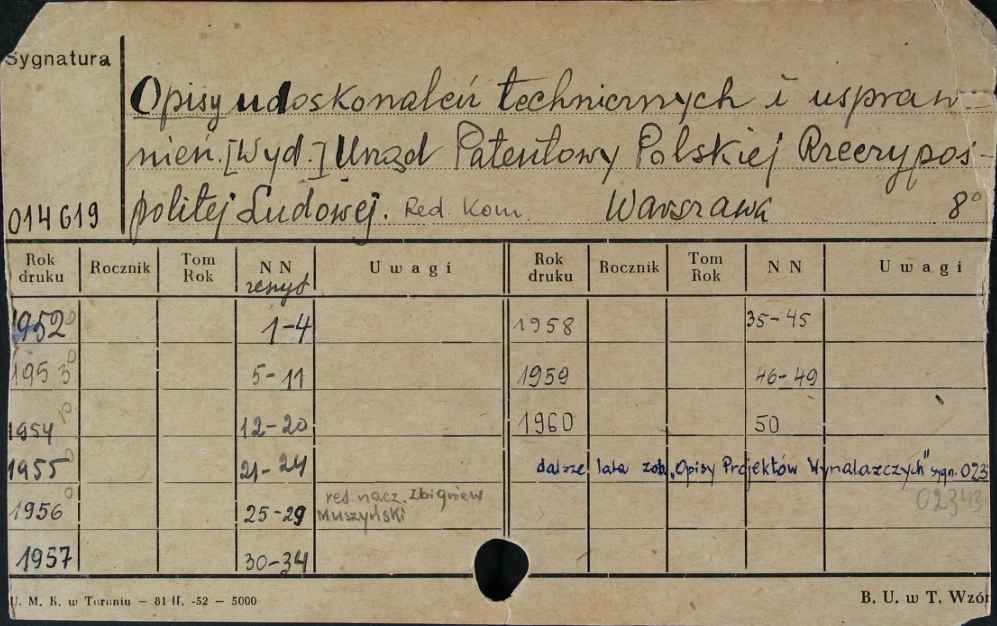 Sygnatura
Opisy udoskonaleń technicznych i uspraw-
nień. [Wyd.] Urząd Patentowy Polskiej Rzeczypos-
politej Ludowej. Red. Kom. Warszawa 8°
014619
Rok druku Rocznik Tom Rok NN zeszyt Uwagi Rok druku Rocznik Tom Rok NN Uwagi
1952 1-4 1958 35-45
1953 5-11 1959 46-49
1954 12-20 1960 50
1955 21-24 dalsze lata zob. „Opisy Projektów Wynalazczych" sygn. 023
1956 25-29 red. nacz. Zbigniew Muszyński 02343
1957 30-34
U. M. K. w Toruniu — 81 II. -52 — 5000 B. U. w T. Wzór